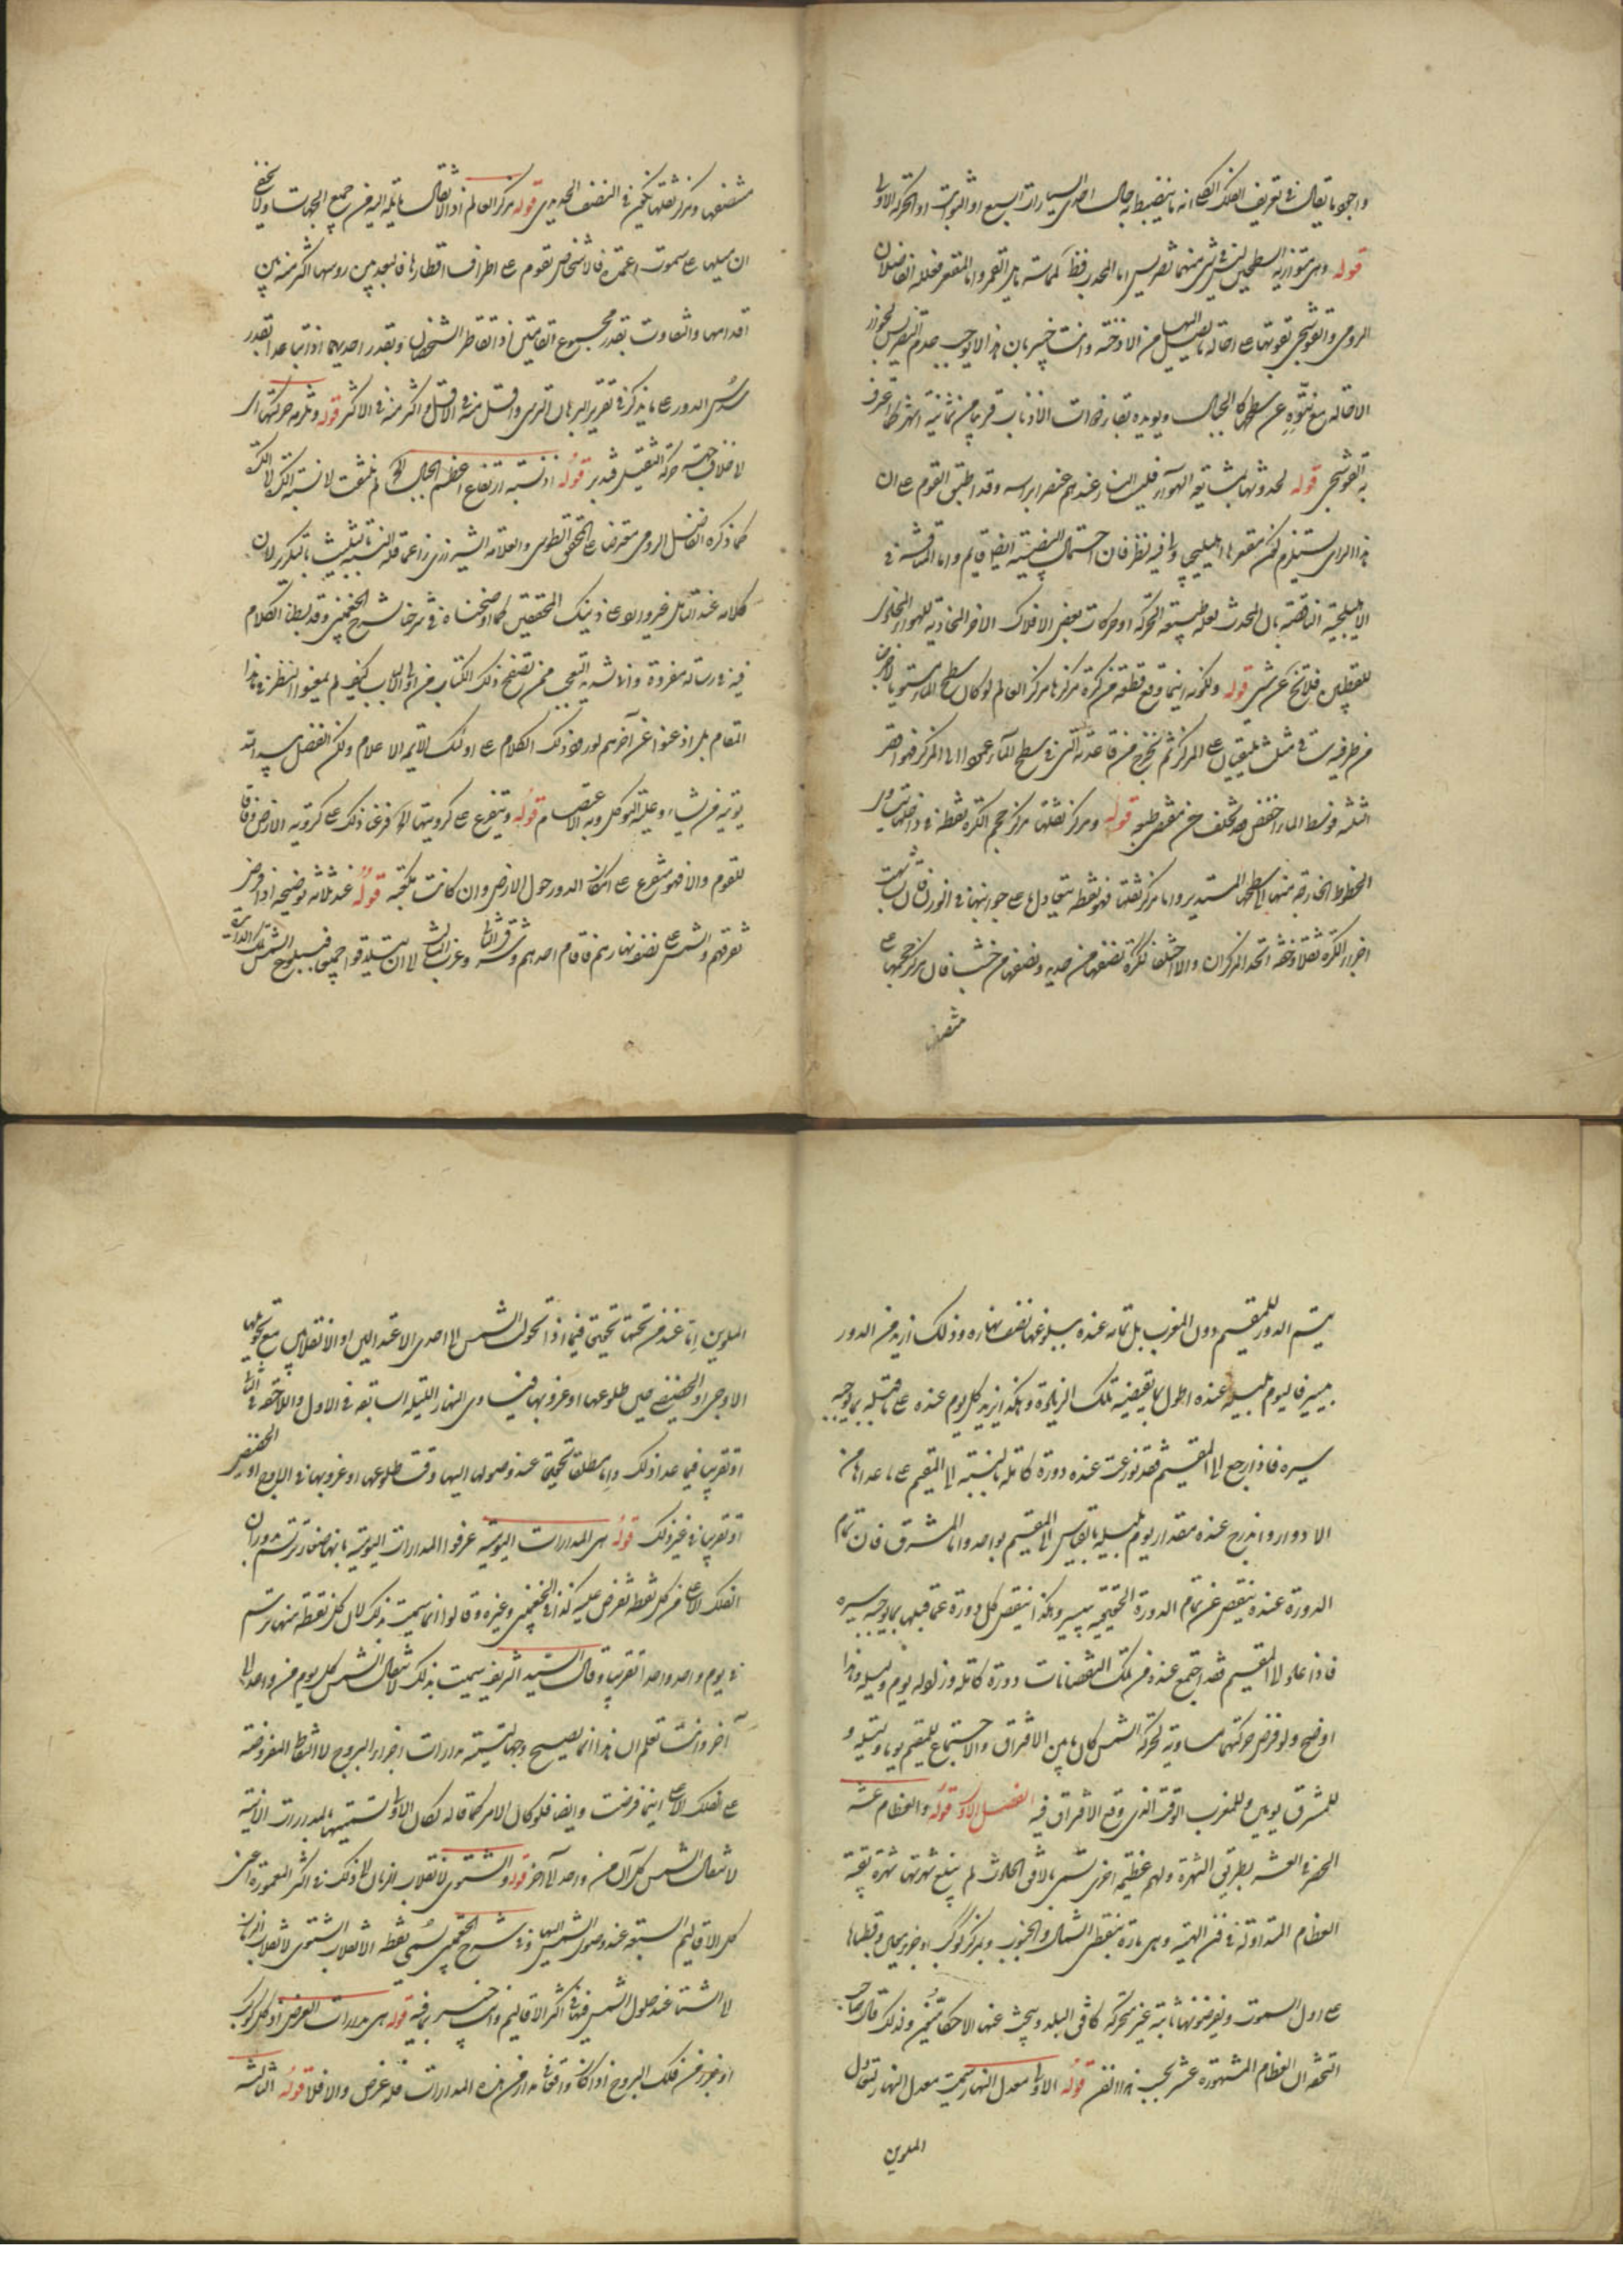 واجود ما يقال في تعريف الفلك الكلي انه ما ينضبط به حال احدى السيارات السبع او الثوابت او الحركة الاولى
قوله وهي متوازية السطحين ليس في شيء منهما تضريس اما المحدب فظ لمماسته مقعر القمر واما المقعر فعلله الفاضلان
الرومي والقوشجي بقوتها على احالة ما يصل اليها من الادخنة وانت خبير بان هذا لا يوجب عدم التضريس لجواز
الاحالة مع نتوه عن سطحها كالجبال ويؤيده بقاء ذوات الاذناب قريبا من ثمانية اشهر كما اعترف
به القوشجي قوله لحدوثها بمشايعة الهواء فليس النار عندهم عنصرا براسه وقد اطبق القوم على ان
هذا الراي يستلزم كون مقعرها اهليلجي وفيه نظر فان احتمال البيضية ايضا قايم واما المناقشة في
الاهليلجية الناقصة بان المحدث لعله طبيعة الحركة او حركات بعض الافلاك الاخر المحاذية للهواء المجاور
للقطبين فلا تخ عن شيء قوله ولكونه اينما وقع قطعة من كرة مركزها مركز العالم لو كان سطح الماء مستويا
من طرفيه في مثلث يلتقيان على المركز ثم نخرج من قاعدته التي في سطح الماء عمودا الى المركز فهو اقصر
الثلثة فوسط الماء اخفض وقد تخلف عن مقتضى طبعه قوله ومركز ثقلها مركز حجم الكرة نقطة في داخلها يتساوى
الخطوط الخارجة منها الى سطحها المستدير واما مركز ثقلها فهو نقطة يتعادل ما على جوانبها في الوزن فان تشابهت
اجزاء الكرة ثقلا وخفة اتحد المركزان والا اختلفا ككرة نصفها من حديد ونصفها من خشب فان مركز حجمها على
منصفها
منصفها ومركز ثقلها يكون في النصف الحديدي قوله مركز العالم اذ الاثقال مايلة اليه من جميع الجهات ولا يخفى
ان ميلها على سموت اعمدة فالاشخاص تقوم على اطراف اقطارها فالبعد بين روسها اكثر منه بين
اقدامها والتفاوت بقدر مجموع القامتين اذا تقاطر الشخصان وبقدر احديهما اذا تباعدا بقدر
سدس الدور على ما يذكر في تقرير البرهان الترسي واقل منه في الاقل واكثر منه في الاكثر قوله وتلزمه حركتها اي
لاختلاف جهة حركة الثقيل فتدبر قوله اذ نسبة ارتفاع اعظم الجبال الخ لم نلتفت لانسبة تلك لا تلك
كما ذكره الفاضل الرومي معترضا على المحقق الطوسي والعلامة الشيرازي زاعما قلة النسبة بالتثليث بالتكرير لان
كلامه عند التامل غير وارد على ذينك المحققين كما اوضحناه في شرحنا شرح الچغميني وقد بسطنا الكلام
فيه في رسالة مفردة وانا شديد التعجب ممن تصفح ذلك الكتاب من اولي الالباب كيف لم يمعنوا النظر في هذا
المقام بل اذعنوا عن آخرهم لورود ذلك الكلام على اولئك الائمة الاعلام ولكن الفضل بيد الله
يؤتيه من يشاء وعليه التوكل وبه الاعتصام قوله ويتفرع على كرويتها الخ فرعنا ذلك على كروية الارض وفاقا
للقوم والا فهو متفرع على امكان الدور حول الارض وان كانت مكعبة قوله عند ثلاثة توضيحه اذا فرض
تفرقهم والشمس على نصف نهارهم فاقام احدهم وشرق الثاني وغرب الثالث الى ان يتلاقوا جميعا فببلوغ الشمس تلك الدايرة
يتم الدور للمقيم دون المغرب بل تمامه عنده ببلوغها نصف نهاره وذلك ازيد من الدور
بيسير فاليوم بليلته عنده اطول بما يقتضيه تلك الزيادة وهكذا يزيد كل يوم عنده على ما قبله بما يوجبه
سيره فاذا رجع الى المقيم فقد توزعت عنده دورة كاملة بالنسبة الى المقيم على ما عداها من
الادوار واندرج عنده مقدار يوم بليلته بالقياس الى المقيم بواحد واما المشرق فان تمام
الدورة عنده ينقص عن تمام الدورة الحقيقية بيسير وهكذا ينقص كل دورة عما قبلها بما يوجبه سيره
فاذا عاد الى المقيم فقد اجتمع عنده من تلك النقصانات دورة كاملة وزاد له يوم وليلة وهذا
اوضح ولو فرض حركتهما مساوية لحركة الشمس كان ما بين الافتراق والاجتماع للمقيم يوما وليلة و
للمشرق يومين وللمغرب الوقت الذي وقع الافتراق فيه الفصل الاول قوله والعظام عشر
الحصر في العشر بطريق الشهرة ولهم عظيمة اخرى تسمى بالافق الحادث لم يبلغ شهرتها شهرة بقية
العظام المتداولة في فن الهيئة وهي مارة بنقطتي الشمال والجنوب وبمركز كوكب او جزء معين وقطباها
على اول السموت ويفرضونها ثابتة غير متحركة كافق البلد ويبحث عنها الاحكاميون ولذلك قال صاحب
التحفة ان العظام المشهورة عشر بحسب هذا الفن قوله الاولى معدل النهار سميت معدل النهار لتعادل
الملوين
الملوين اما عند من تحتها تحقيقا فيما اذا تحول الشمس الى احدى الاعتدالين او الانقلابين مع تحويلها
الاوجي او الحضيضي حين طلوعها او غروبها فيتساوى النهار الليلة السابقة في الاول واللاحقة في الثاني
او تقريبا فيما عدا ذلك واما مطلقا تحقيقا عند وصولها اليها وقت طلوعها او غروبها في الاوج او الحضيض
او تقريبا في غير ذلك قوله هي المدارات اليومية عرفوا المدارات اليومية بانها صغار ترتسم بدوران
الفلك الاعلى من كل نقطة تفرض عليه كذا في الچغميني وغيره وقالوا انما سميت بذلك لان كل نقطة منها ترسم
في يوم واحد واحدا تقريبا وقال السيد الشريف سميت بذلك لانتقال الشمس كل يوم من واحد الى
آخر وانت تعلم ان هذا انما يصحح وجها لتسمية مدارات اجزاء البروج لا النقاط المفروضة
على الفلك الاعلى اينما فرضت وايضا فلو كان الامر كما قاله لكان الاولى تسميتها بالمدارات الآنية
لانتقال الشمس كل آن من واحد الى آخر قوله والشتوي لانقلاب الزمان الخ ذلك في اكثر المعمورة اعني
كل الاقاليم السبعة عند وصول الشمس اليها وفي شرح الچغميني سمي نقطة الانقلاب الشتوي لانقلاب الزمان
الى الشتا عند حلول الشمس فيها في اكثر الاقاليم وانت خبير بما فيه قوله هي مدارات العرض اذ كل كوكب
او جزء من فلك البروج اذا كان واقعا في مدار من هذه المدارات فله عرض والا فلا قوله الثالثة